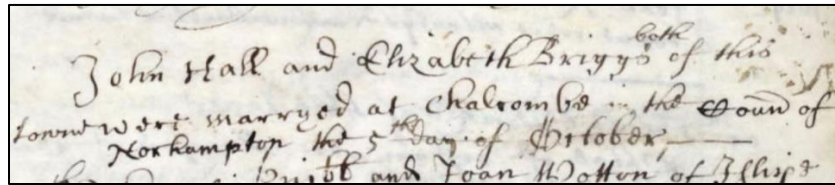 John Hall and Elizabeth Briggs both of this
towne were marryed at Chalcombe in the Coun of
Northampton the 5th day of October
and Joan Wotton of Islipe